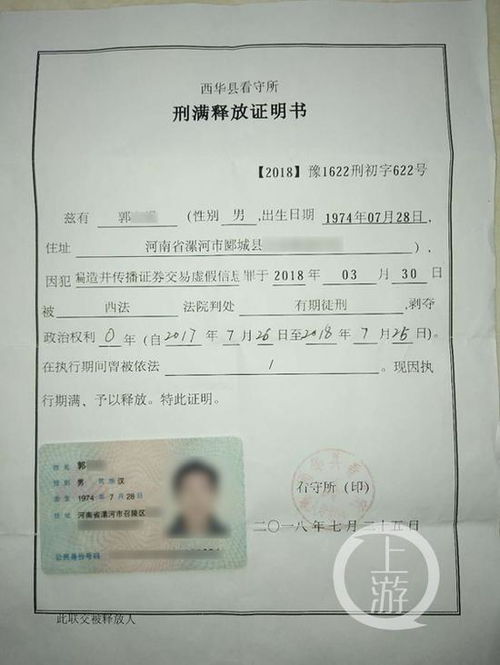 西华县看守所
刑满释放证明书
【2018】豫1622刑初字622号
兹有 郭 (性别 男 ,出生日期 1974年07月28日,
住址 河南省漯河市郾城县 ),
因犯 编造并传播证券交易虚假信息罪于 2018 年 03 月 30 日
被 西法 法院判处 有期徒刑 ,剥夺
政治权利 0 年 (自2017年7月26日至2018年7月25日)。
在执行期间曾被依法 / 。现因执
行期满、予以释放。特此证明。
姓名 郭
性别 男 民族 汉
出生 1974 年 7 月 28 日
住址 河南省漯河市召陵区
公民身份号码
看守所 (印)
二〇一八年七月二十五日
上游
此联交被释放人